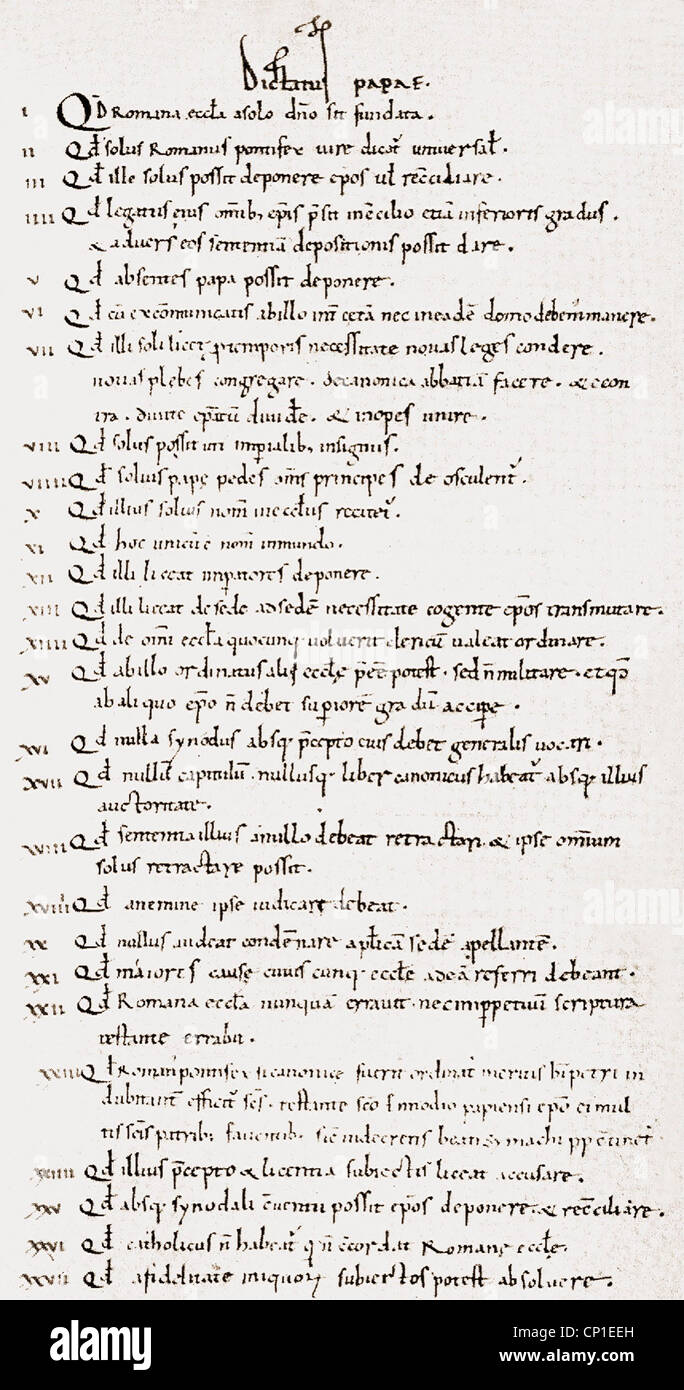 Dictatus papae.
I Qd Romana eccla a solo dno sit fundata.
II Qd solus Romanus pontifex iure dicat universal.
III Qd ille solus possit deponere epos ul recciliare.
IIII Qd legatus eius omib, epis psit in ccilio etia inferioris gradus.
& advers eos sententia depositionis possit dare.
V Qd absentes papa possit deponere.
VI Qd cu excomunicatis ab illo int ceta nec in eade domo debem manere.
VII Qd illi soli licet p temporis necessitate novas leges condere.
novas plebes congregare. de canonica abbatia facere. & e con
tra. divite epatu divide. & inopes unire.
VIII Qd solus possit uti imperialib, insigniis.
VIIII Qd solius pape pedes oms principes deosculent.
X Qd illius solius nom in ecclis recitet.
XI Qd hoc unicu e nom in mundo.
XII Qd illi liceat impatores deponere.
XIII Qd illi liceat de sede ad sede necessitate cogente epos transmutare.
XIIII Qd de omi eccla quocunq voluerit clericu valeat ordinare.
XV Qd ab illo ordinatus alii eccle pee potest. sed n militare. et qd
ab aliquo epo n debet superiore gradu accipe.
XVI Qd nulla synodus absq pcepto eius debet generalis vocari.
XVII Qd nullu capitulu nullusq liber canonicus habeat absq illius
auctoritate.
XVIII Qd sententia illius a nullo debeat retractari. & ipse omnium
solus retractare possit.
XVIIII Qd a nemine ipse iudicare debeat.
XX Qd nullus audeat condenare aplica sede apellante.
XXI Qd maiores cause cuiuscunq eccle ad ea referri debeant.
XXII Qd Romana eccla nunqua erravit. nec imppetuu scriptura
testante errabit.
XXIII Qd Roman pontifex si canonice fuerit ordinat meritis bi petri in
dubitant efficit scs. testante sco Ennodio papiensi epo ei mul
tis scis patrib faventib. sic in decretis beati symachi pp ctinet
XXIIII Qd illius pcepto & licentia subiectis liceat accusare.
XXV Qd absq synodali cventu possit epos deponere. & recciliare.
XXVI Qd catholicus n habeat q n ccordat Romane eccle.
XXVII Qd a fidelitate iniquor subiectos potest absolvere.
alamy
Image ID: CP1EEH
www.alamy.com